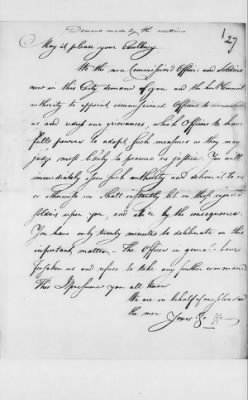 Demand made by the soldiers
127
May it please your Excellency
We the non Commissioned Officers and Soldiers
now in this City demand of you and the hon Council
authority to appoint commissioned Officers to command
us and redress our grievances, which Officers to have
full power to adopt such measures as they may
judge most likely to procure us justice. You will
immediately your such authority and deliver it to us
or otherwise we shall instantly let in those injured
soldiers upon you, and abide by the consequence
You have only twenty minutes to deliberate on this
important matter. The Officers in general have
forsaken us and refuse to take any further command
This I presume you all know
We are in behalf of
the men
Jones &c